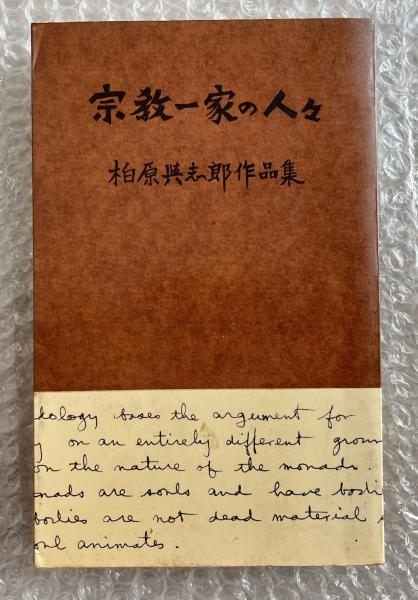 宗教一家の人々
柏原兵志郎作品集
kology bases the argument for
y on an entirely different groun
on the nature of the monads.
nads are souls and have bodi
bodies are not dead material
oul animates.